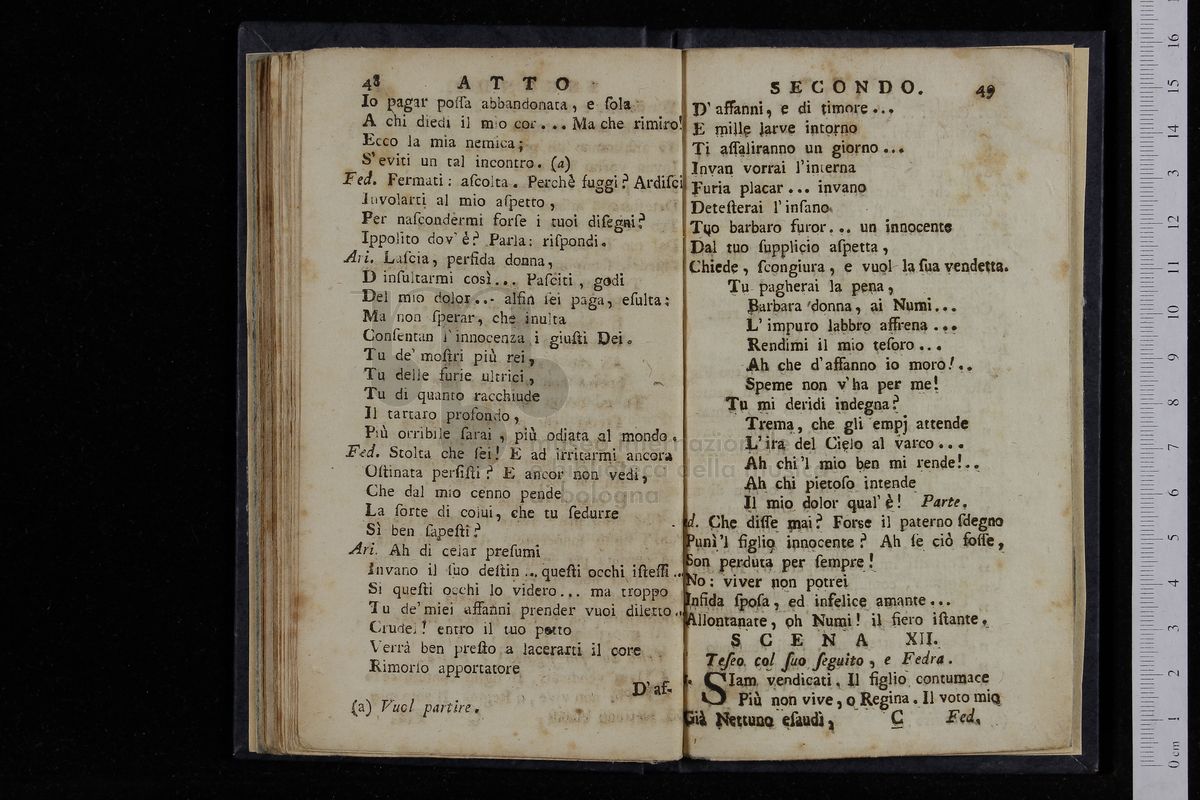 48 ATTO
Io pagar poſſa abbandonata, e ſola
A chi diedi il mio cor... Ma che rimiro!
Ecco la mia nemica;
S'eviti un tal incontro. (a)
Fed. Fermati: aſcolta. Perchè fuggi? Ardiſci
Involarti al mio aſpetto,
Per naſcondermi forſe i tuoi diſegni?
Ippolito dov'è? Parla: riſpondi.
Ari. Laſcia, perfida donna,
D inſultarmi così... Paſciti, godi
Del mio dolor... alfin ſei paga, eſulta:
Ma non ſperar, che inulta
Conſentan l'innocenza i giuſti Dei.
Tu de' moſtri più rei,
Tu delle furie ultrici,
Tu di quanto racchiude
Il tartaro profondo,
Più orribile ſarai, più odiata al mondo.
Fed. Stolta che ſei! E ad irritarmi ancora
Oſtinata perſiſti? E ancor non vedi,
Che dal mio cenno pende
La ſorte di colui, che tu ſedurre
Sì ben ſapeſti?
Ari. Ah di celar preſumi
Invano il ſuo deſtin... queſti occhi iſteſſi...
Si queſti occhi lo videro... ma troppo
Tu de' miei affanni prender vuoi diletto..
Crudel! entro il tuo petto
Verrà ben preſto a lacerarti il core
Rimorſo apportatore
D'af-
(a) Vuol partire.
SECONDO. 49
D' affanni, e di timore...
E mille larve intorno
Ti aſſaliranno un giorno...
Invan vorrai l'interna
Furia placar... invano
Deteſterai l'inſano
Tuo barbaro furor... un innocente
Dal tuo ſupplicio aſpetta,
Chiede, ſcongiura, e vuol la ſua vendetta.
Tu pagherai la pena,
Barbara donna, ai Numi...
L'impuro labbro affrena...
Rendimi il mio teſoro...
Ah che d'affanno io moro!..
Speme non v'ha per me!
Tu mi deridi indegna?
Trema, che gli empj attende
L'ira del Cielo al varco...
Ah chi'l mio ben mi rende!..
Ah chi pietoſo intende
Il mio dolor qual'è! Parte.
d. Che diſſe mai? Forse il paterno ſdegno
Punì'l figlio innocente? Ah ſe ciò foſſe,
Son perduta per ſempre!
No: viver non potrei
Infida ſpoſa, ed infelice amante...
Allontanate, oh Numi! il fiero iſtante.
SCENA XII.
Teſeo col ſuo ſeguito, e Fedra.
SIam vendicati. Il figlio contumace
Più non vive, o Regina. Il voto mio
Già Nettuno eſaudì,
C Fed.
museo internazionale
e biblioteca della musica
bologna
0 cm 1 2 3 4 5 6 7 8 9 10 11 12 13 14 15 16